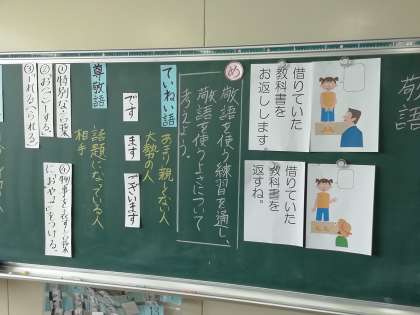 敬語
借りていた
教科書を
お返しします。
借りていた
教科書を
返すね。
め
敬語を使う練習を通し、
敬語を使うよさについて
考えよう。
ていねい語
です
ます
ございます
あまり親しくない人
大勢の人
尊敬語
話題になっている人
相手
①特別な言葉
②お(ご)~する、
③~れる(られる)
④物事を表す言葉
におやごをつける。